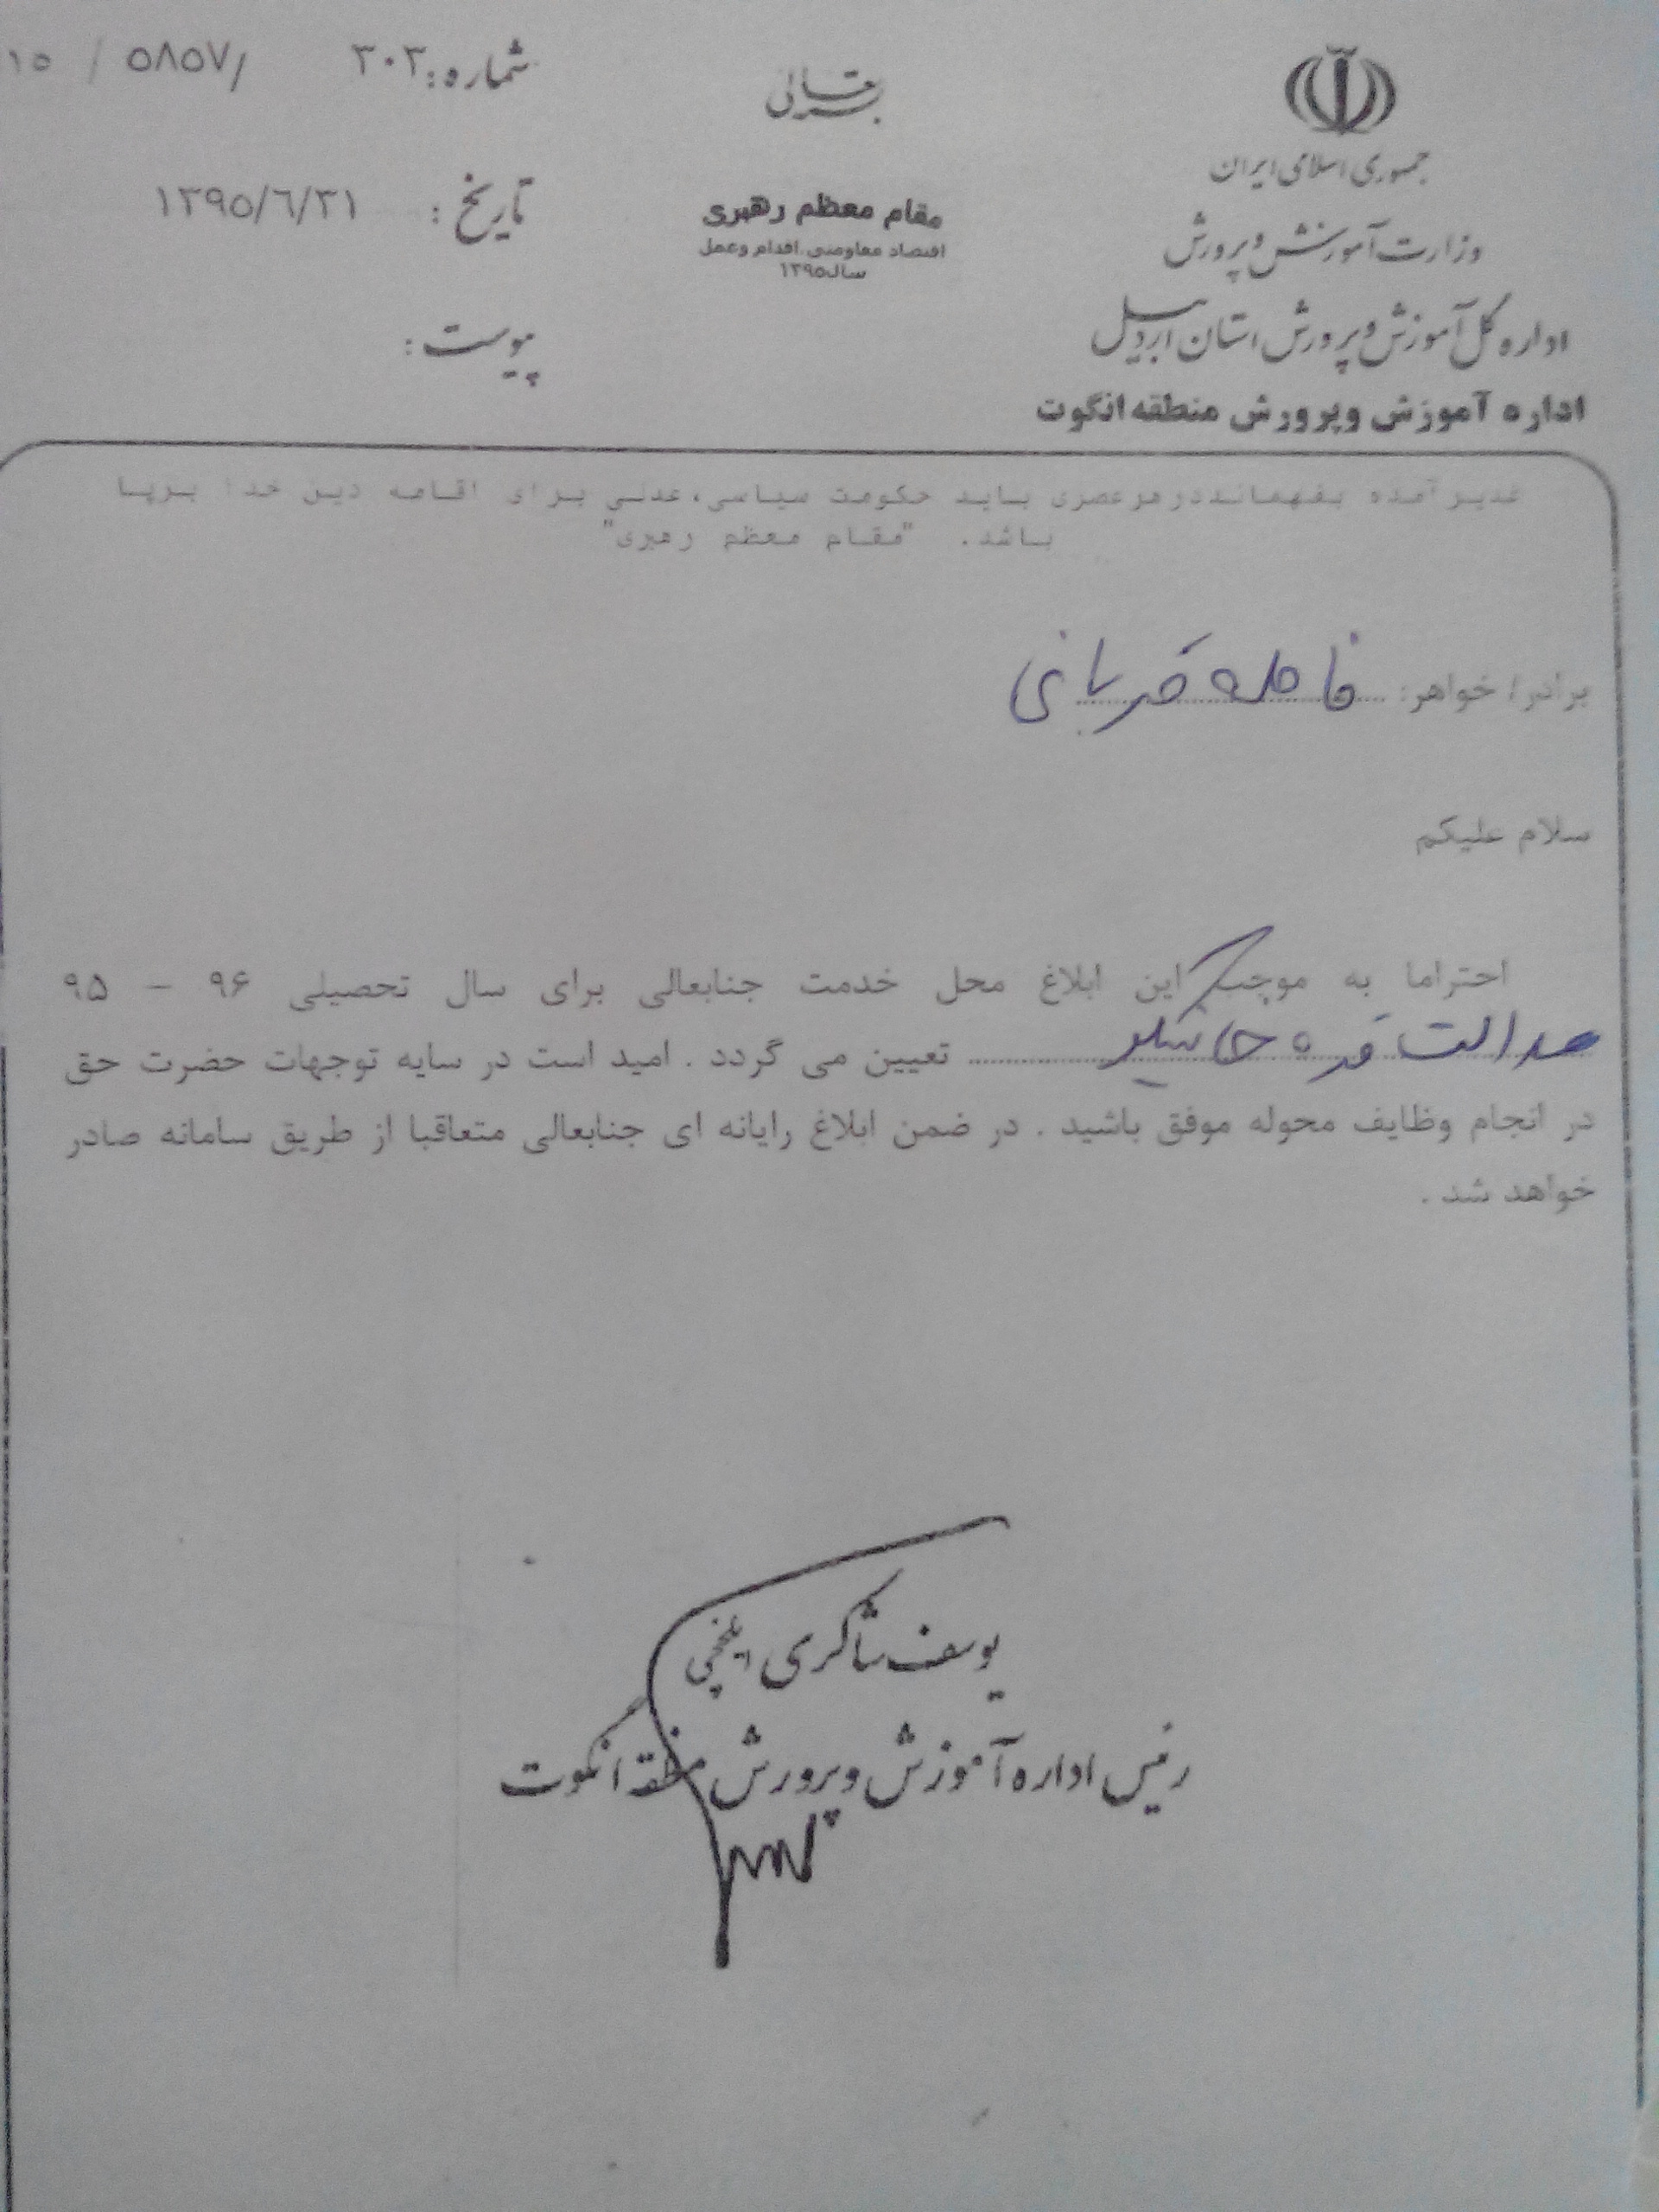 جمهوری اسلامی ایران
وزارت آموزش و پرورش
اداره کل آموزش و پرورش استان اردبیل
اداره آموزش وپرورش منطقه انگوت
مقام معظم رهبری
اقتصاد مقاومتی.اقدام وعمل
سال۱۳۹۵
شماره: ۳۰۳ /۵۸۵۷ / ۱۵
تاریخ : ۱۳۹۵/۶/۳۱
پیوست:
غدیر آمده بفهماند در هر عصری باید حکومت سیاسی، برای اقامه دین خدا برپا
باشد. "مقام معظم رهبری"
برادر/ خواهر: قربانی
سلام علیکم
احتراما به موجب این ابلاغ محل خدمت جنابعالی برای سال تحصیلی ۹۶ – ۹۵
عدالت قره تعیین می گردد . امید است در سایه توجهات حضرت حق
در انجام وظایف محوله موفق باشید . در ضمن ابلاغ رایانه ای جنابعالی متعاقبا از طریق سامانه صادر
خواهد شد .
یوسف شاکری ایلخچی
رئیس اداره آموزش و پرورش منطقه انگوت